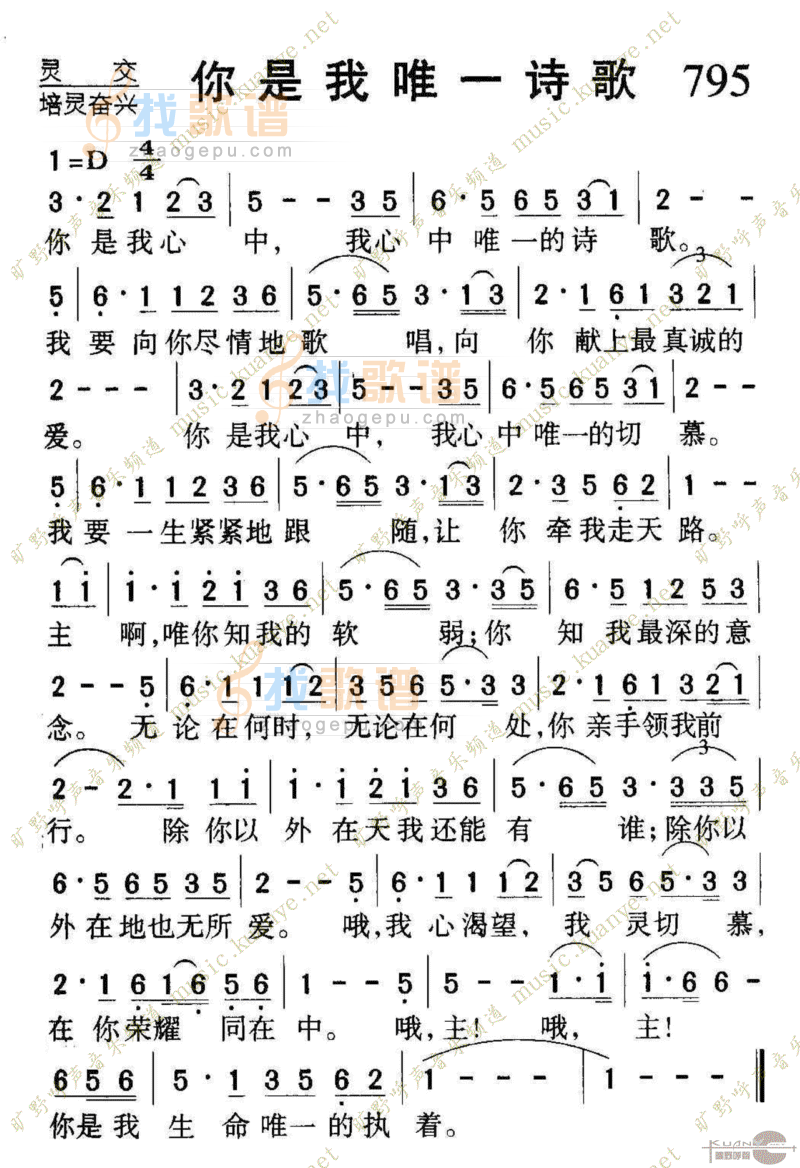 灵 交 你是我唯一诗歌 795
培灵奋兴
1=D 4/4
3·2 1 2 3 | 5 - - 3 5 | 6·5 6 5 3 1 | 2 - -
你是我心中, 我心中唯一的诗歌。
5 | 6·1 1 2 3 6 | 5·6 5 3·1 3 | 2·1 6 1 3 2 1 |
我要向你尽情地歌唱,向你献上最真诚的
2 - - - | 3·2 1 2 3 | 5 - - 3 5 | 6·5 6 5 3 1 | 2 - -
爱。 你是我心中, 我心中唯一的切慕。
5 | 6·1 1 2 3 6 | 5·6 5 3·1 3 | 2·3 5 6 2 | 1 - -
我要一生紧紧地跟随,让你牵我走天路。
1 i | i·i 2 i 3 6 | 5·6 5 3·3 5 | 6·5 1 2 5 3 |
主啊,唯你知我的软弱;你知我最深的意
2 - - 5 | 6·1 1 1 2 | 3 5 6 5·3 3 | 2·1 6 1 3 2 1 |
念。 无论在何时, 无论在何处,你亲手领我前
2 - 2·1 1 i | i·i 2 i 3 6 | 5·6 5 3·3 3 5 |
行。 除你以外在天我还能有谁;除你以
6·5 6 5 3 5 | 2 - - 5 | 6·1 1 1 2 | 3 5 6 5·3 3 |
外在地也无所爱。 哦,我心渴望, 我灵切慕,
2·1 6 1 6 5 6 | 1 - - 5 | 5 - - i·i | i·6 6 -
在你荣耀同在中。 哦,主! 哦,主!
6 5 6 | 5·1 3 5 6 2 | 1 - - - | 1 - - - ‖
你是我生命唯一的执着。
找歌谱
zhaogepu.com
找歌谱
zhaogepu.com
找歌谱
zhaogepu.com
旷野呼声音乐频道 music.kuanye.net
KUAN
旷野呼声